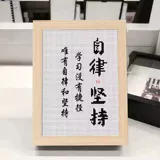 自律·坚持
学习没有捷径
唯有自律和坚持